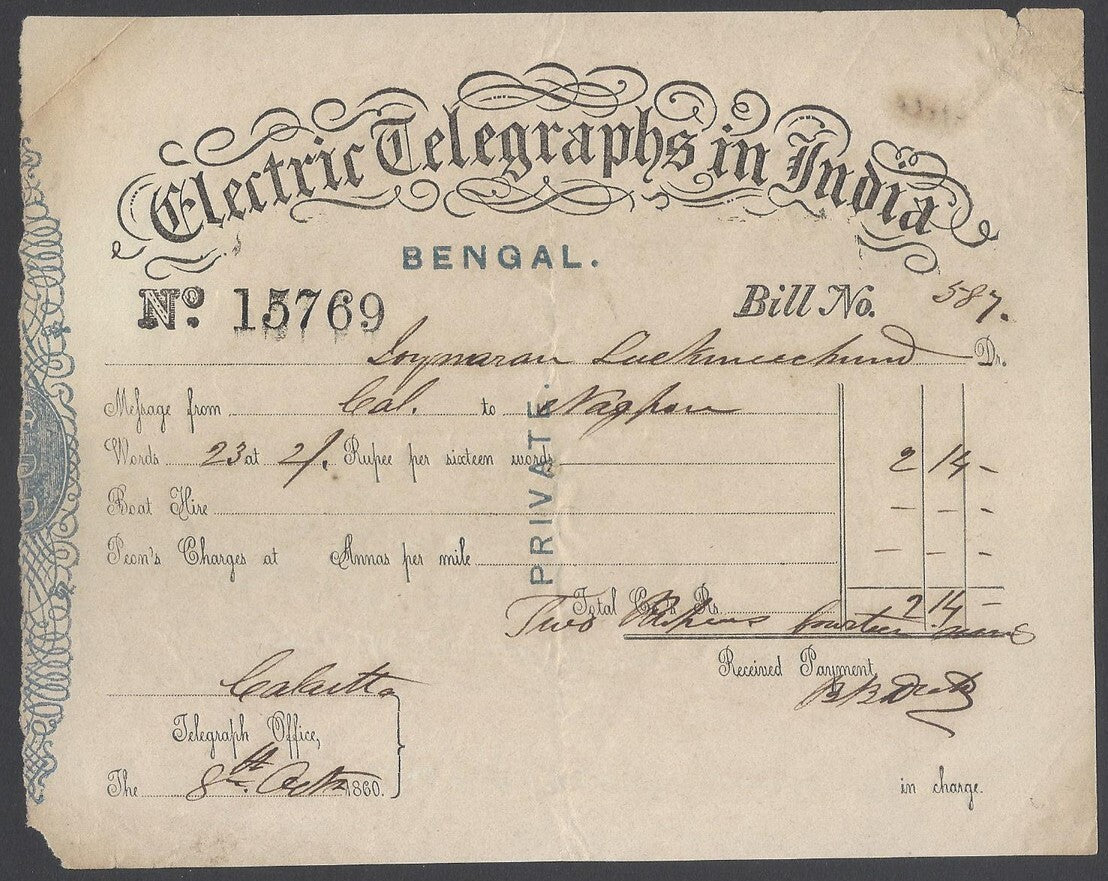 Electric Telegraphs in India
BENGAL.
No. 15769 Bill No. 587.
Joynaran Luckmeechund Dr.
Meſsage from Cal. to Nagpore
Words 23 at 2/. Rupee per sixteen words 2 14 -
Boat Hire - - -
Peon's Charges at Annas per mile - - -
Total Co.'s Rs. 2 14 -
Two Rupees fourteen annas
PRIVATE.
Received Payment
Calcutta
Telegraph Office,
The 8th Octr 1860.
in charge.